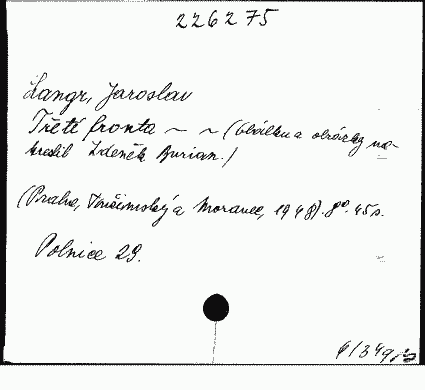 226275
Langr, Jaroslav
Třetí fronta ~ ~ (Obálku a obrázky na-
kreslil Zdeněk Burian.)
(Praha, Toužimský a Moravec, 1948). 8º. 45 s.
Polnice 29.